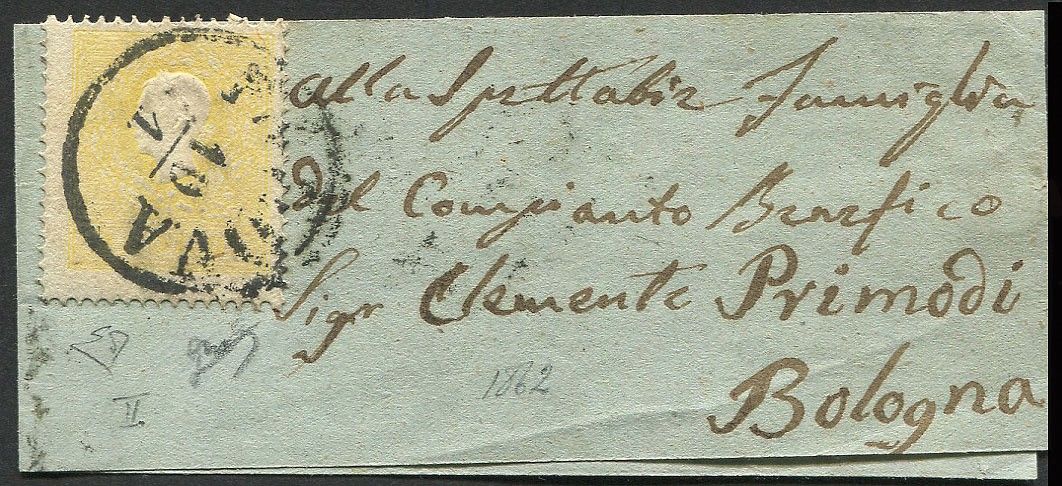 alla Spettabile Famiglia
del Compianto Benefico
Sigr Clemente Primodi
Bologna
1862
II
OVA
19/4